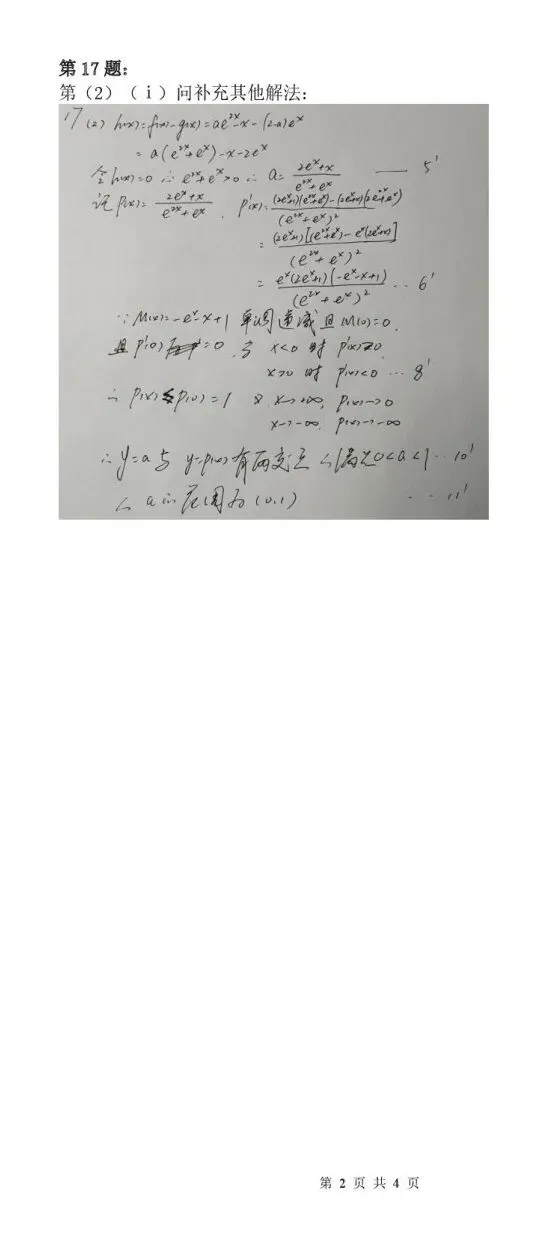 第17题:
第（2）（ⅰ）问补充其他解法:
17 (2) h(x)=f(x)-g(x)=ae^{2x}-x-(2-a)e^x
=a(e^{2x}+e^x)-x-2e^x
令h(x)=0 ∴ e^{2x}+e^x>0 ∴ a=\frac{2e^x+x}{e^{2x}+e^x} —— 5'
记 p(x)=\frac{2e^x+x}{e^{2x}+e^x}, p'(x)=\frac{(2e^x+1)(e^{2x}+e^x)-(2e^x+x)(2e^{2x}+e^x)}{(e^{2x}+e^x)^2}
=\frac{(2e^x+1)[(e^{2x}+e^x)-e^x(2e^x+x)]}{(e^{2x}+e^x)^2}
=\frac{e^x(2e^x+1)(-e^x-x+1)}{(e^{2x}+e^x)^2} ... 6'
∵ M(x)=-e^x-x+1 单调递减且M(0)=0.
且p'(0)=0, 当 x<0 时 p'(x)>0
x>0 时 p'(x)<0 ... 8'
∴ p(x)≤p(0)=1 又 x→+∞, p(x)→0
x→-∞, p(x)→-∞
∴ y=a与 y=p(x)有两交点 ∴满足0<a<1 ... 10'
∴ a的范围为(0,1) ... 11'
第 2 页 共 4 页